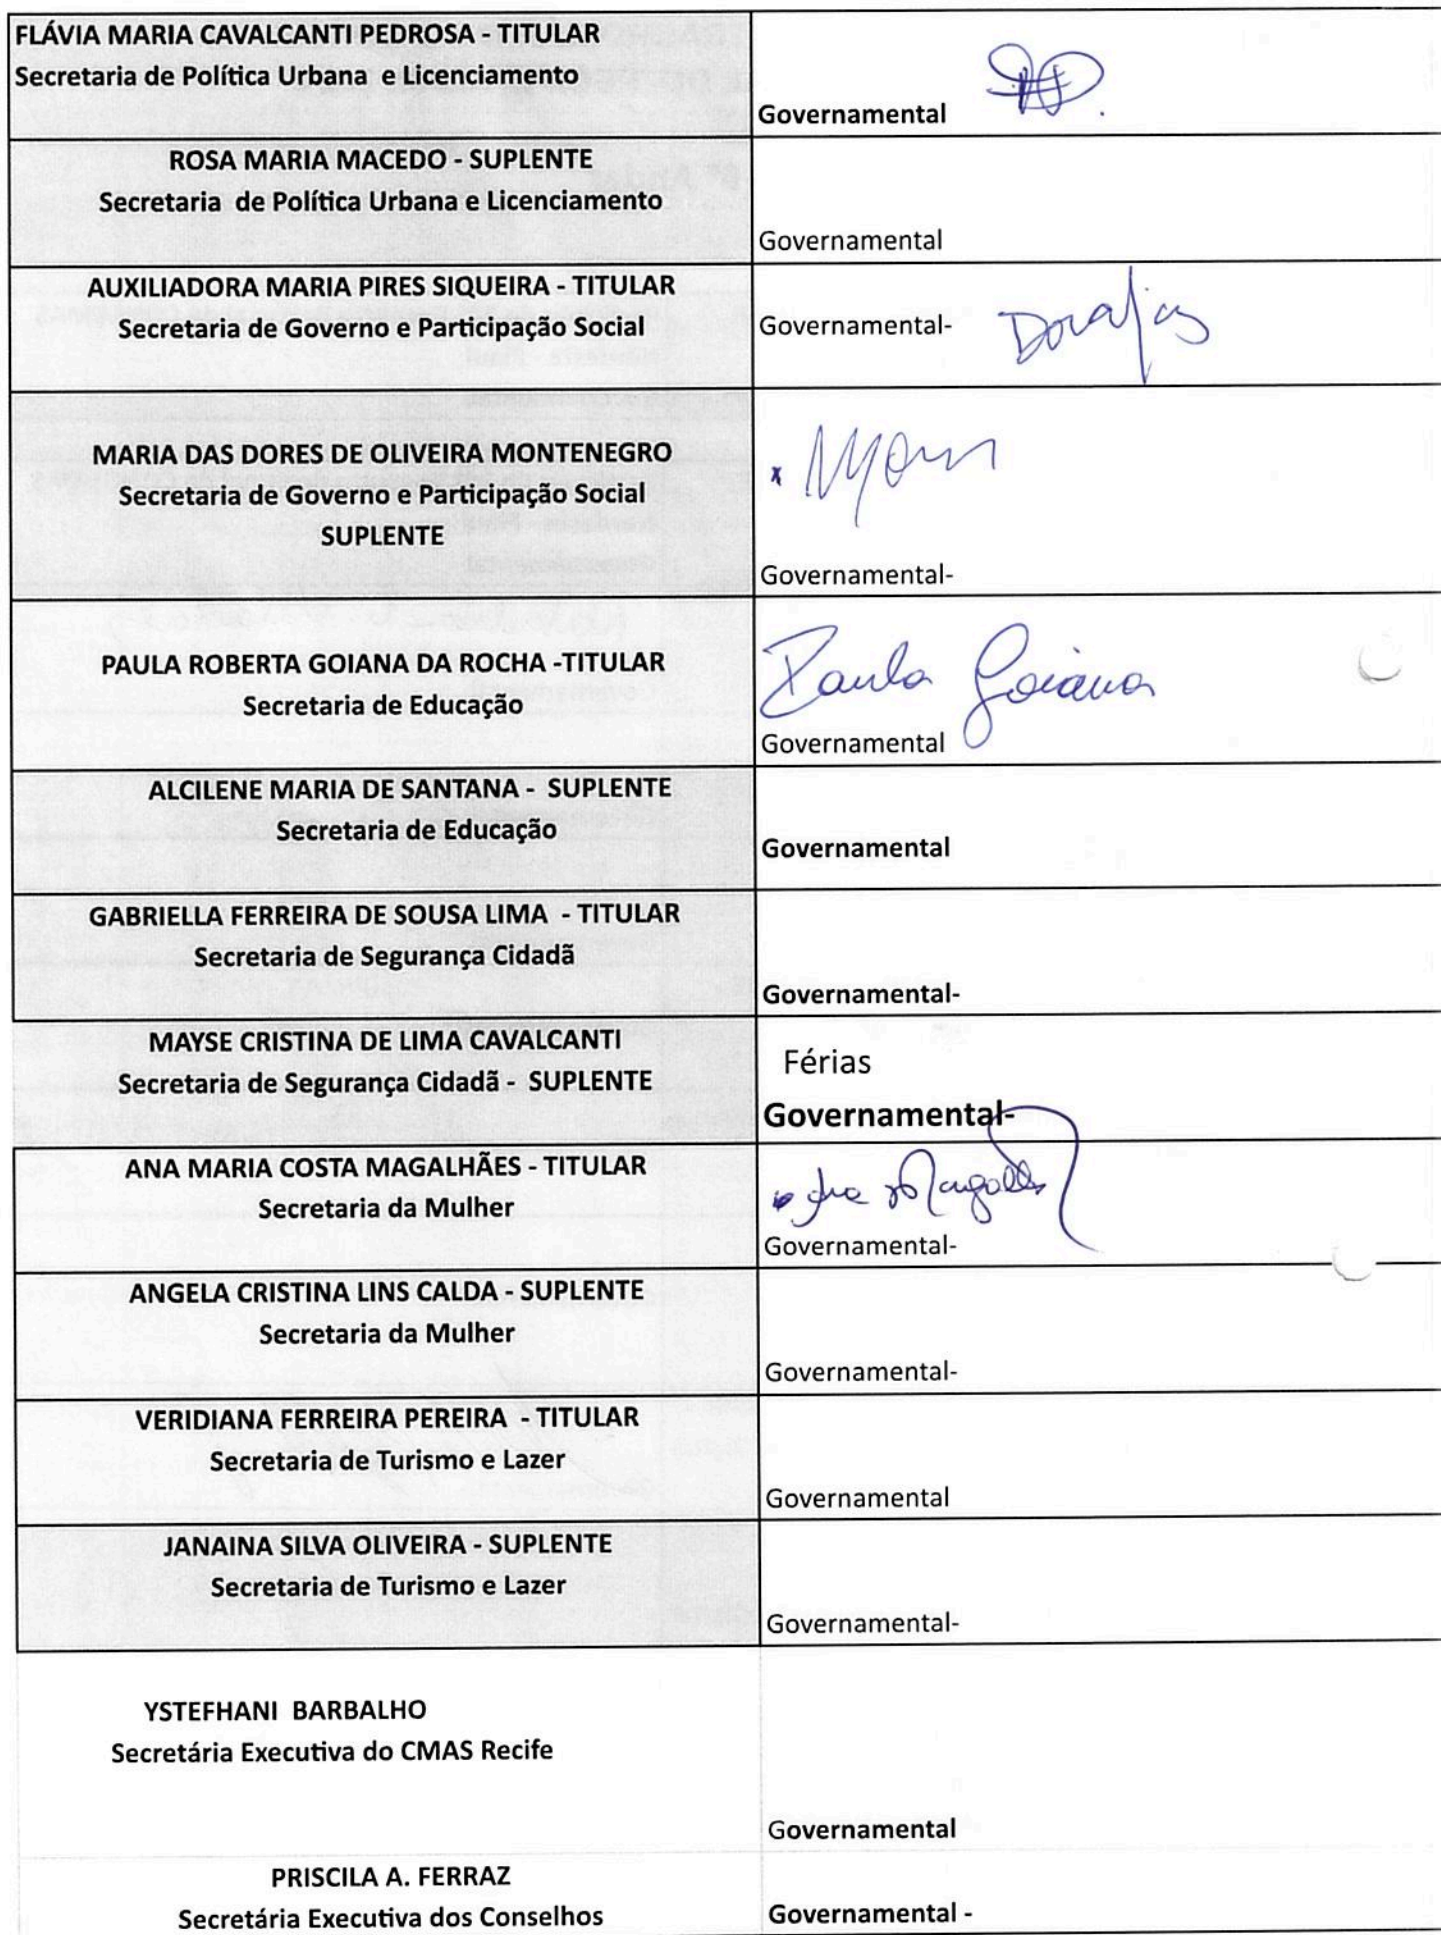 FLÁVIA MARIA CAVALCANTI PEDROSA - TITULAR
Secretaria de Política Urbana e Licenciamento
Governamental
ROSA MARIA MACEDO - SUPLENTE
Secretaria de Política Urbana e Licenciamento
Governamental
AUXILIADORA MARIA PIRES SIQUEIRA - TITULAR
Secretaria de Governo e Participação Social
Governamental-
MARIA DAS DORES DE OLIVEIRA MONTENEGRO
Secretaria de Governo e Participação Social
SUPLENTE
Governamental-
PAULA ROBERTA GOIANA DA ROCHA -TITULAR
Secretaria de Educação
Paula Goiana
Governamental
ALCILENE MARIA DE SANTANA - SUPLENTE
Secretaria de Educação
Governamental
GABRIELLA FERREIRA DE SOUSA LIMA - TITULAR
Secretaria de Segurança Cidadã
Governamental-
MAYSE CRISTINA DE LIMA CAVALCANTI
Secretaria de Segurança Cidadã - SUPLENTE
Férias
Governamental-
ANA MARIA COSTA MAGALHÃES - TITULAR
Secretaria da Mulher
Governamental-
ANGELA CRISTINA LINS CALDA - SUPLENTE
Secretaria da Mulher
Governamental-
VERIDIANA FERREIRA PEREIRA - TITULAR
Secretaria de Turismo e Lazer
Governamental
JANAINA SILVA OLIVEIRA - SUPLENTE
Secretaria de Turismo e Lazer
Governamental-
YSTEFHANI BARBALHO
Secretária Executiva do CMAS Recife
Governamental
PRISCILA A. FERRAZ
Secretária Executiva dos Conselhos
Governamental -